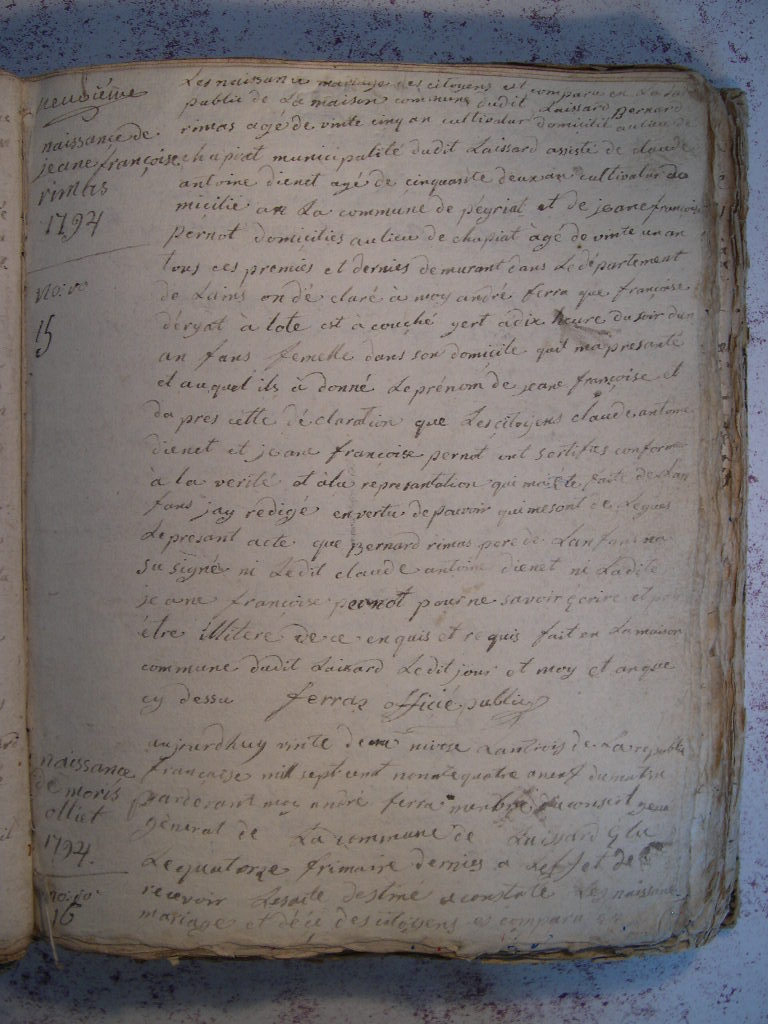 neusiéme
naissance de
jeane françoise
rimas
1794
no: vo
15
Les naissance mariage des citoyens est comparu en La sale
public de La maison commune dudit Laissard Bernard
rimas agé de vinte cinq an cultivateur domicilié au lieu de
chapiat municipalité dudit Laissard assiste de claude
antoine dienet agé de cinquante deux an cultivateur do
micilié an La commune de peyriat et de jeane françoise
pernot domicilies au lieu de chapiat àgé de vinte un an
tous ces premies et dernies demurant dans Le département
de Lains on dé claré à moy andré ferra que françoise
à lote est à couché yert à dix heure du soir dun
an fans femelle dans son domicile quil ma presanté
et auquel ils à donné Le prénom de jeane françoise et
da pres cette dé claration que Les citoyens claude antoine
dienet et jeane françoise pernot ont sertifas conforme
à la verité et à la représantation qui ma été faite de Lan
fans jay redigé en vertu de pouvoir qui me sont de Legues
Le presant acte que Bernard rimas pere de Lanfans na
su signé ni Ledit claude antoine dienet ni Ladite
jeane françoise pernot pour ne savoir écrire et pour
être illitere de ce en quis et re quis fait en La maison
commune dudit Laissard Ledit jour et moy et an que
cy dessu ferraz officié public
naissance
de moris
olliet
1794.
no: vo
16
aujourdhuy vinte deux nivose Lan trois de La republi
françoese mill sept cent nonnte quatre a neuf du matin
pardevant moy André ferra menbre du conseil gene
général de La commune de Laissard Elu
Le quatorze frimaire dernies a Leffet de
recevoir Les acte destiné a constaté Les naissane
mariage et décé des citoyens es comparu en